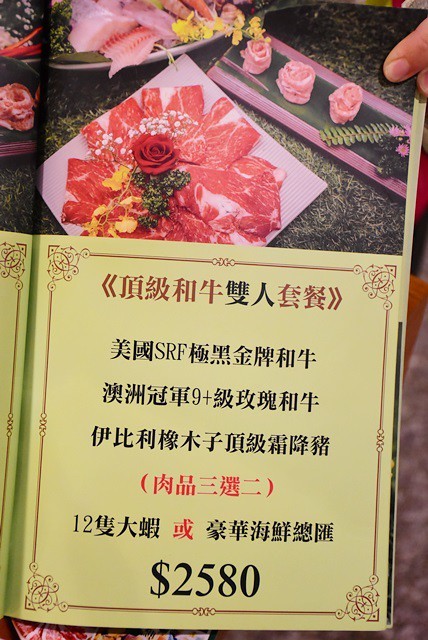 《頂級和牛雙人套餐》
美國SRF極黑金牌和牛
澳洲冠軍9+級玫瑰和牛
伊比利橡木子頂級霜降豬
（肉品三選二）
12隻大蝦 或 豪華海鮮總匯
$2580